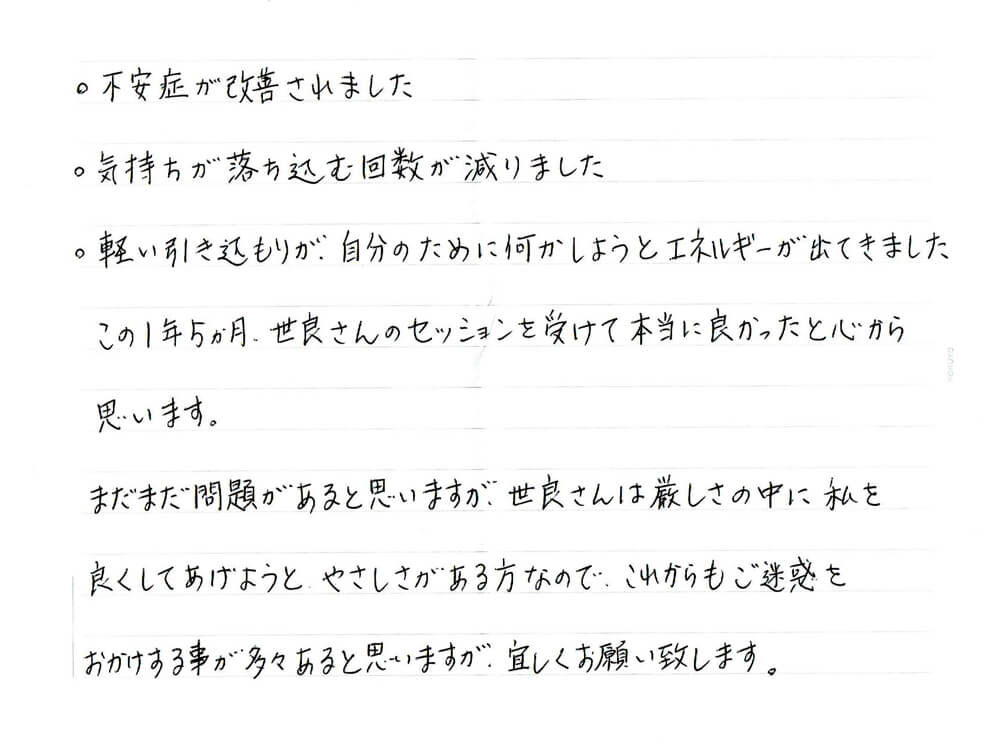 ○不安症が改善されました
○気持ちが落ち込む回数が減りました
○軽い引き込もりが、自分のために何かしようとエネルギーが出てきました
この1年5ヵ月、世良さんのセッションを受けて本当に良かったと心から
思います。
まだまだ問題があると思いますが、世良さんは厳しさの中に私を
良くしてあげようと、やさしさがある方なので、これからもご迷惑を
おかけする事が多々あると思いますが、宜しくお願い致します。